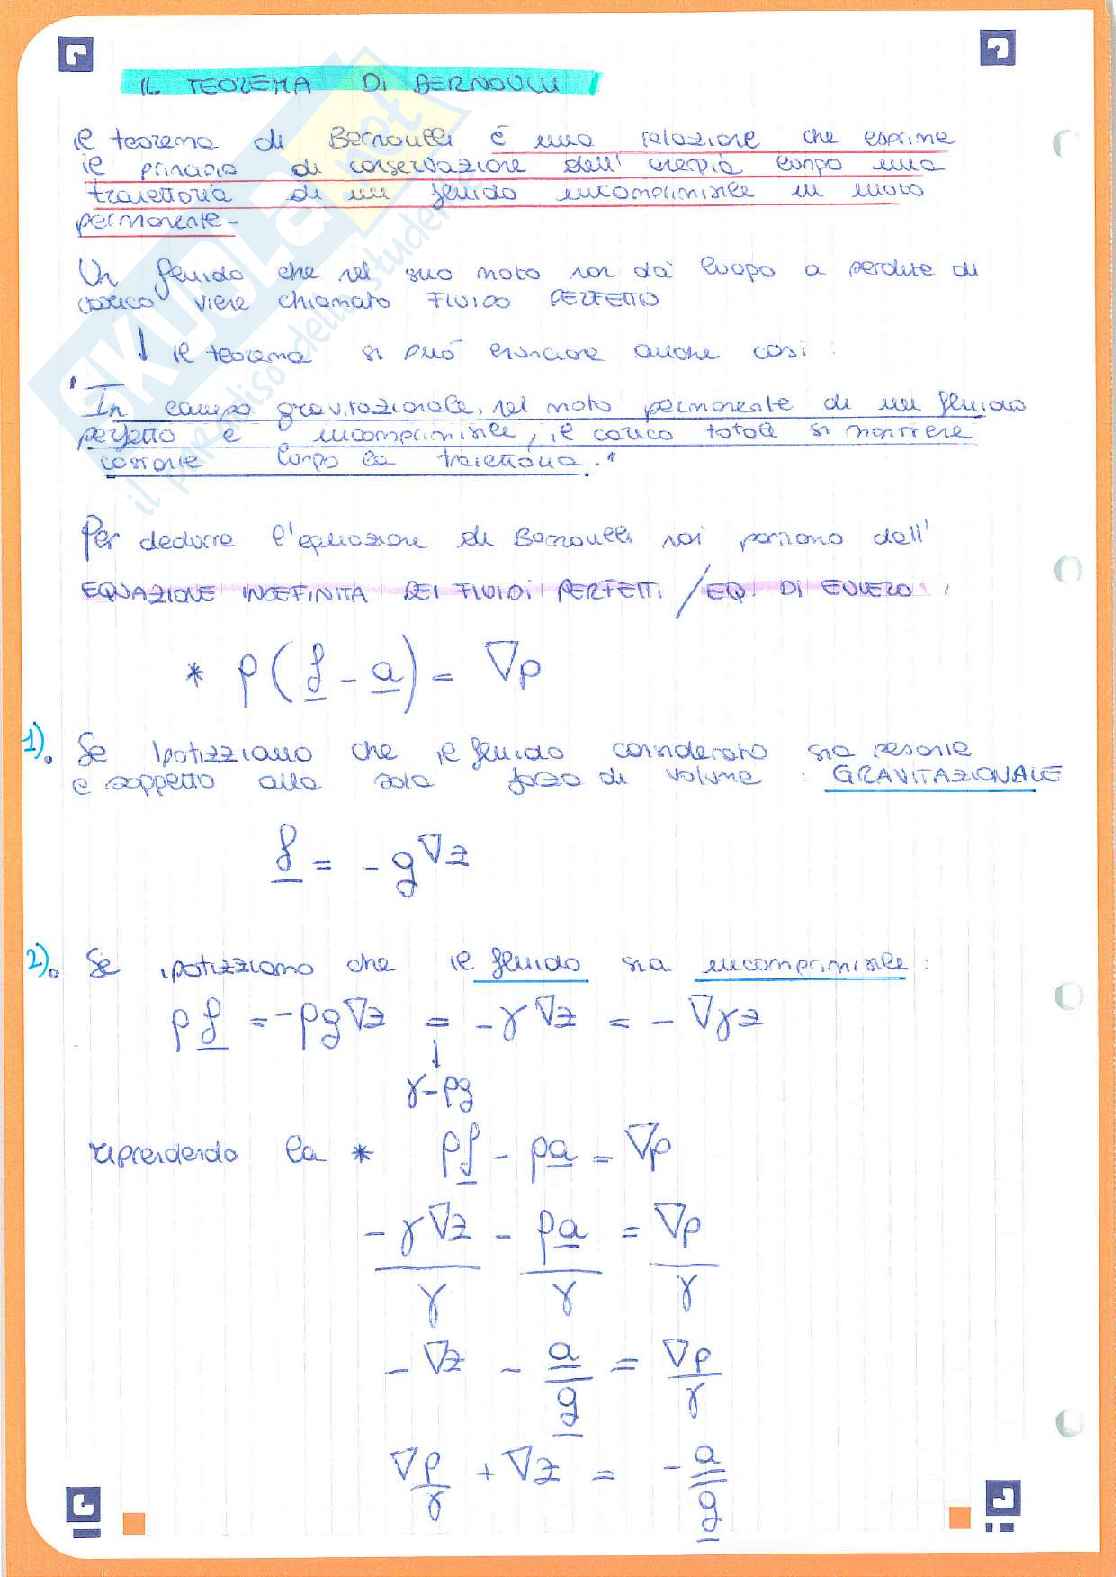 IL TEOREMA DI BERNOULLI
il teorema di Bernoulli é una relazione che esprime
il principio di conservazione dell' energia lungo una
traiettoria di un fluido incomprimibile in moto
permanente-
Un fluido che nel suo moto non da' luogo a perdite di
carico viene chiamato FLUIDO PERFETTO
↓ il teorema si può enunciare anche così:
"In campo gravitazionale, nel moto permanente di un fluido
perfetto e incomprimibile, il carico totale si mantiene
costante lungo la traiettoria."
Per dedurre l'equazione di Bernoulli noi partiamo dall'
EQUAZIONE INDEFINITA DEI FLUIDI PERFETTI / EQ. DI EULERO:
* ρ(f - a) = ∇p
1). Se Ipotizziamo che il fluido considerato sia pesante
e soggetto alla sola forza di volume: GRAVITAZIONALE
f = -g∇z
2). Se ipotizziamo che il fluido sia incomprimibile:
ρf = -ρg∇z = -γ∇z = -∇γz
↓
γ-ρg
riprendendo la * ρf - ρa = ∇p
-γ∇z/γ - ρa/γ = ∇p/γ
-∇z - a/g = ∇p/γ
∇p/γ + ∇z = -a/g
SKUOLA.net
il paradiso dello studente